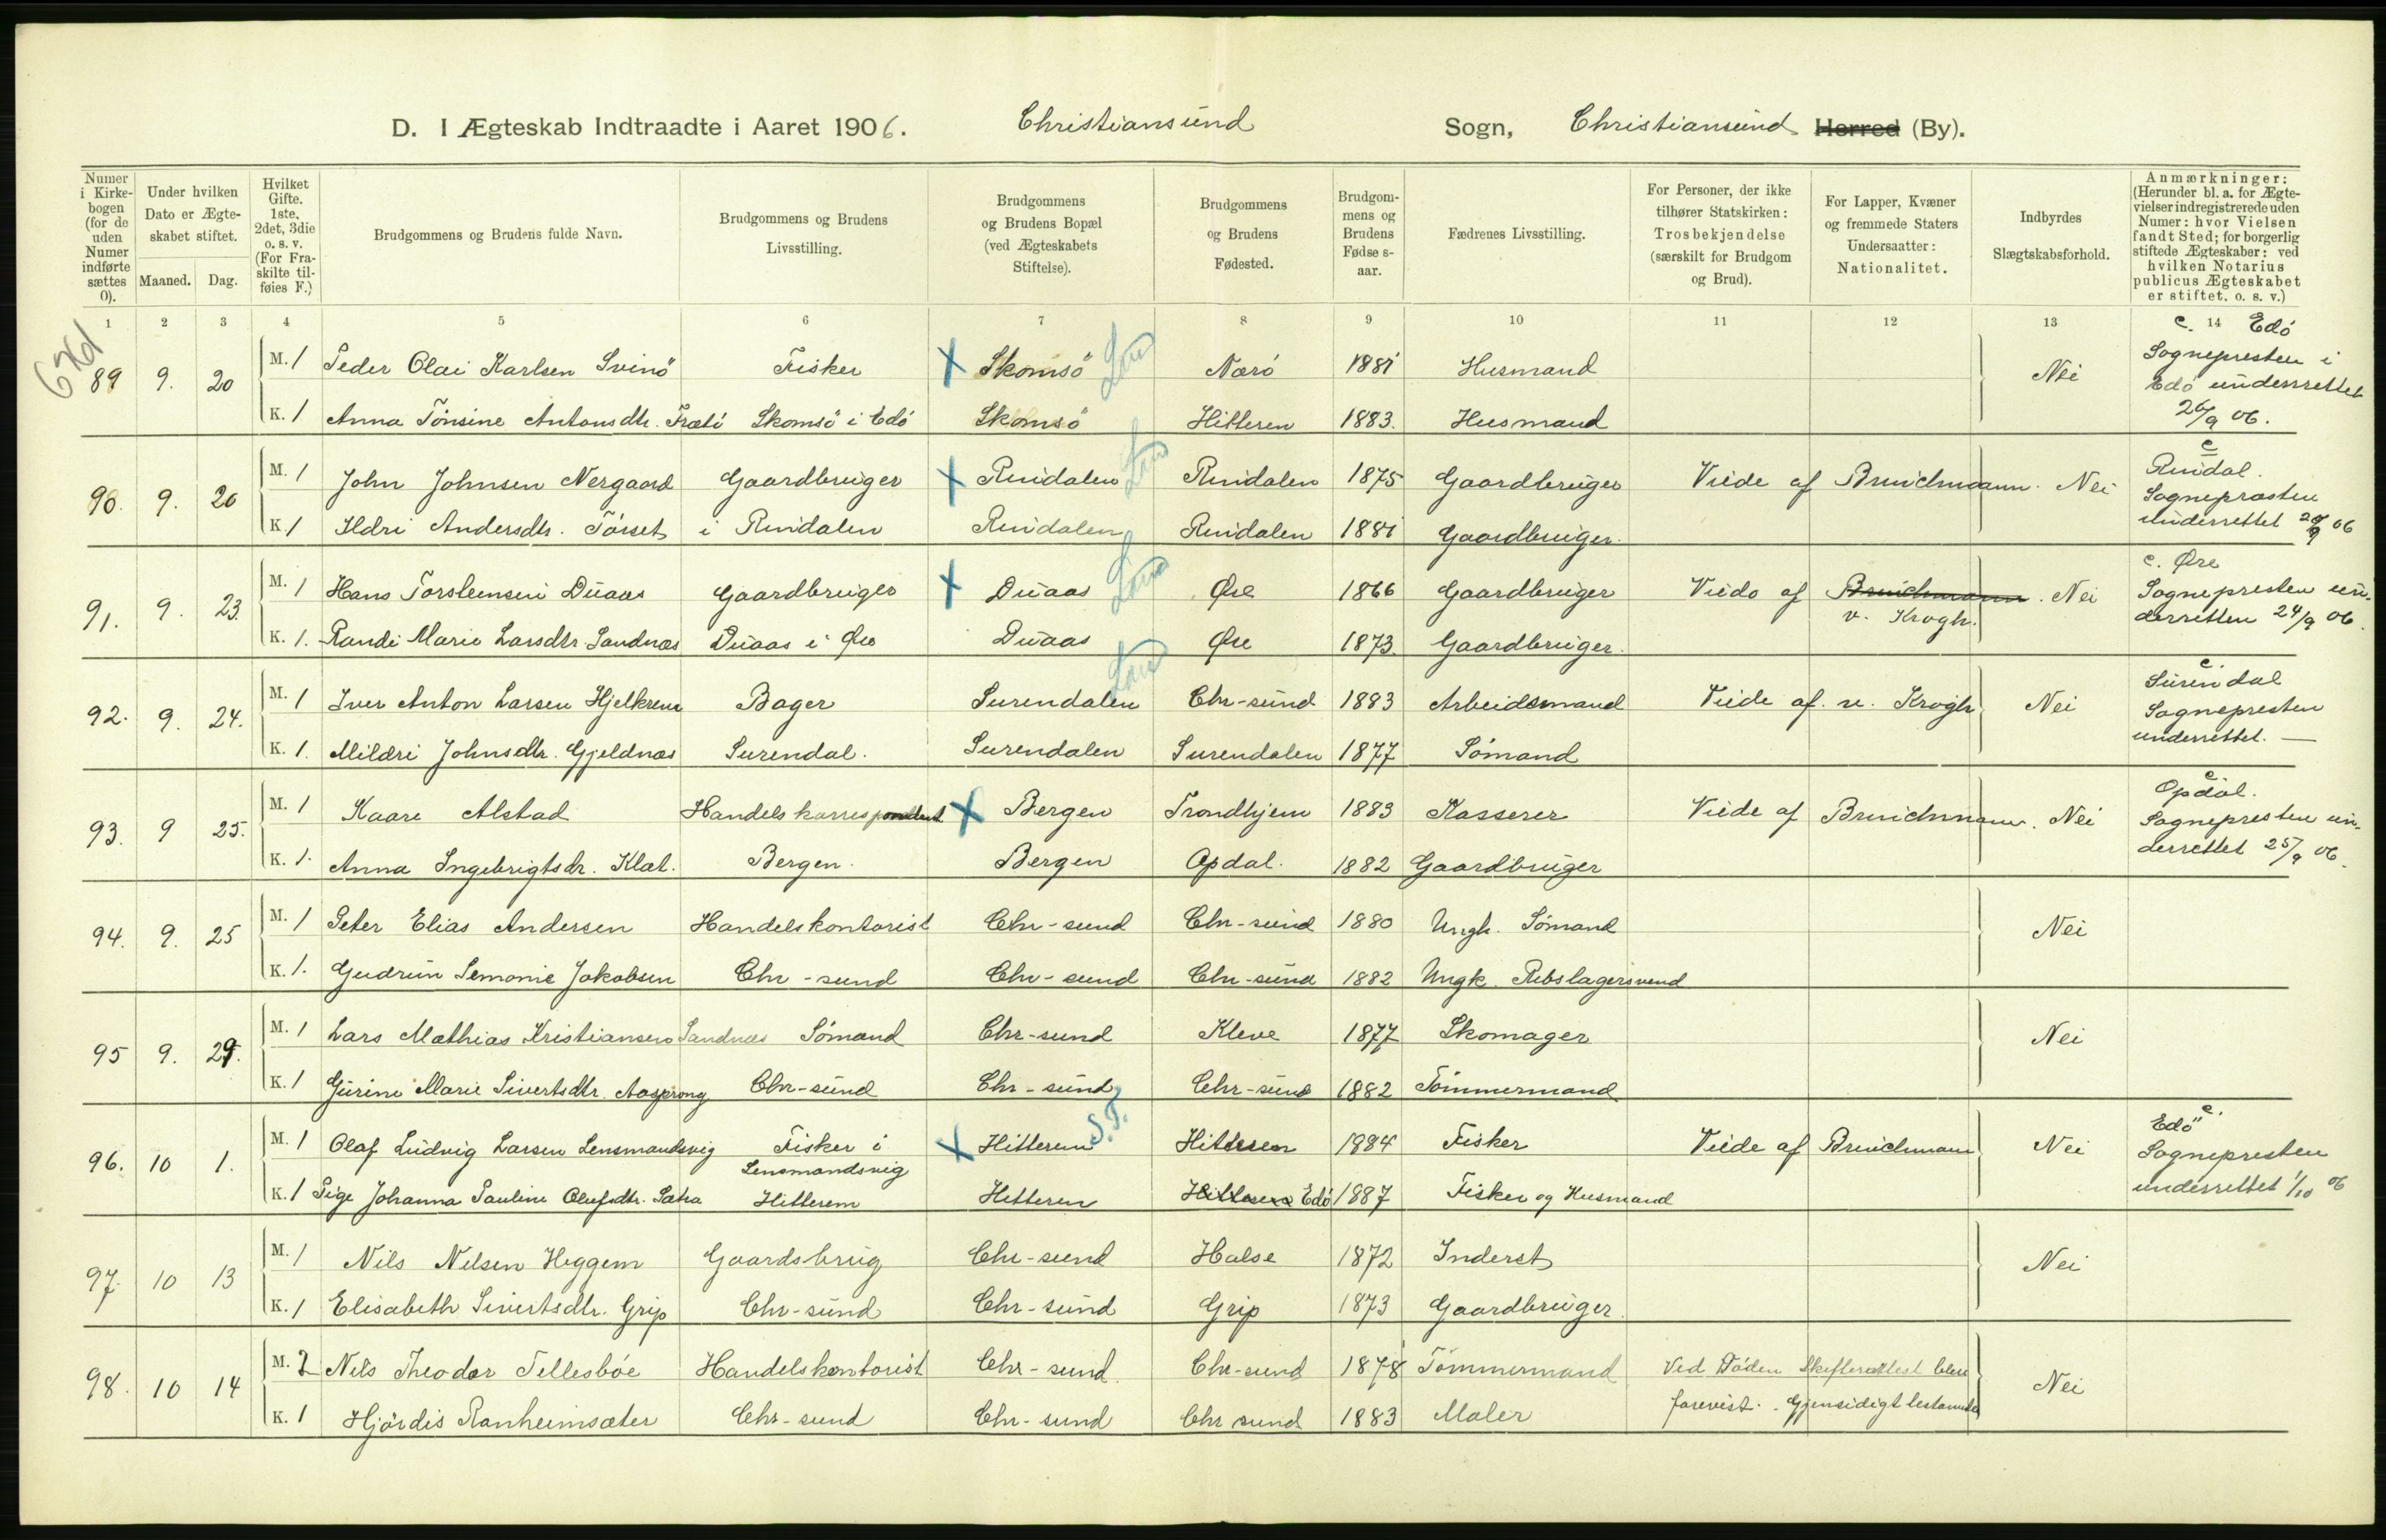 D. I Ægteskab Indtraadte i Aaret 1906. Christiansund Sogn, Christiansund Herred (By).
Numer i Kirkebogen (for de uden Numer indførte sættes 0).
Under hvilken Dato er Ægteskabet stiftet.
Maaned. Dag.
Hvilket Gifte. 1ste, 2det, 3die o. s. v. (For Fraskilte tilføies F.)
Brudgommens og Brudens fulde Navn.
Brudgommens og Brudens Livsstilling.
Brudgommens og Brudens Bopæl (ved Ægteskabets Stiftelse).
Brudgommens og Brudens Fødested.
Brudgommens og Brudens Fødse s-aar.
Fædrenes Livsstilling.
For Personer, der ikke tilhører Statskirken: Trosbekjendelse (særskilt for Brudgom og Brud).
For Lapper, Kvæner og fremmede Staters Undersaatter: Nationalitet.
Indbyrdes Slægtskabsforhold.
Anmærkninger: (Herunder bl. a. for Ægtevielser indregistrerede uden Numer: hvor Vielsen fandt Sted; for borgerlig stiftede Ægteskaber: ved hvilken Notarius publicus Ægteskabet er stiftet. o. s. v.)
1 2 3 4 5 6 7 8 9 10 11 12 13 14
89 9. 20 M. 1 Peder Olai Karlsen Svinö Fisker Skomsö Land Nærö 1881 Husmand Nei c. Edö Sognepresten i Edö underrettet 26/9 06.
K. 1 Anna Tönsine Antonsdtr. Skomsö i Edö Skomsö Hitteren 1883. Husmand
90. 9. 20 M. 1 John Johnsen Nergaard Gaardbruger Rindalen Land Rindalen 1875 Gaardbruger Viede af Bruichmann. Nei c Rindal. Sognepræsten underrettet 06
K. 1 Ildri Andersdtr. Törset i Rindalen Rindalen Rindalen 1881 Gaardbruger.
91. 9. 23. M. 1 Hans Torsteinsen Duaas Gaardbruger Duaas Land Øre 1866 Gaardbruger Viede af Bruichmann. v. Krogh. Nei c. Øre Sognepresten underretten 24/9 06.
K. 1. Randi Marie Larsdtr Sandnæs Duaas i Øre Duaas Øre 1873. Gaardbruger.
92. 9. 24. M. 1 Iver Anton Larsen Hjelkrem Bager Surendalen Land Chr-sund 1883 Arbeidsmand Viede af v. Krogh Nei c. Surendal Sognepresten underrettet. —
K. 1. Mildri Johnsdtr. Gjeldnæs Surendal. Surendalen Surendalen 1877 Sömand
93. 9 25. M. 1 Kaare Alstad Handelskorrespondent Bergen Trondhjem 1883 Kasserer Viede af Bruichmann. Nei c Opdal. Sognepresten underrettet 25/9 06.
K. 1. Anna Ingebrigtsdr. Klæt. Bergen. Bergen Opdal. 1882 Gaardbruger
94. 9. 25 M. 1 Peter Elias Andersen Handelskontorist Chr-sund Chr-sund 1880 Ungk. Sömand Nei
K. 1. Gudrun Semonie Jakobsen Chr-sund Chr-sund Chr-sund 1882 Ungk. Rebslagersvend
95 9. 29. M. 1 Lars Mathias Kristiansen Sandnæs Sömand Chr-sund Kleve 1877 Skomager Nei
K. 1 Gurine Marie Sivertsdtr. Aasprong Chr-sund Chr-sund Chr-sund 1882 Tömmermand
96. 10 1. M. 1 Olaf Ludvig Larsen Lensmandsvig Fisker i Lensmandsvig Hitteren S.T. Hitteren 1884 Fisker Viede af Bruichmann Nei c. Edö Sognepresten underrettet 1/10 06
K. 1 Johanna Pauline Olufsdtr. Hitterem Hitteren Hitteren Edö 1887 Fisker og Husmand
97. 10 13 M. 1 Nils Nilsen Heggem Gaardsbrug Chr-sund Halse 1872 Inderst Nei
K. 1 Elisabeth Sivertsdtr. Grip Chr-sund Chr-sund Grip 1873 Gaardbruger.
98. 10 14 M. 2 Nils Theodor Tellesböe Handelskontorist Chr-sund. Chr-sund 1878 Tömmermand Ved Döden Skifteattest blev forevist. Gjensidigt testamente Nei
K. 1 Hjördis Ranheimsæter Chr-sund Chr-sund Chr sund 1883 Maler